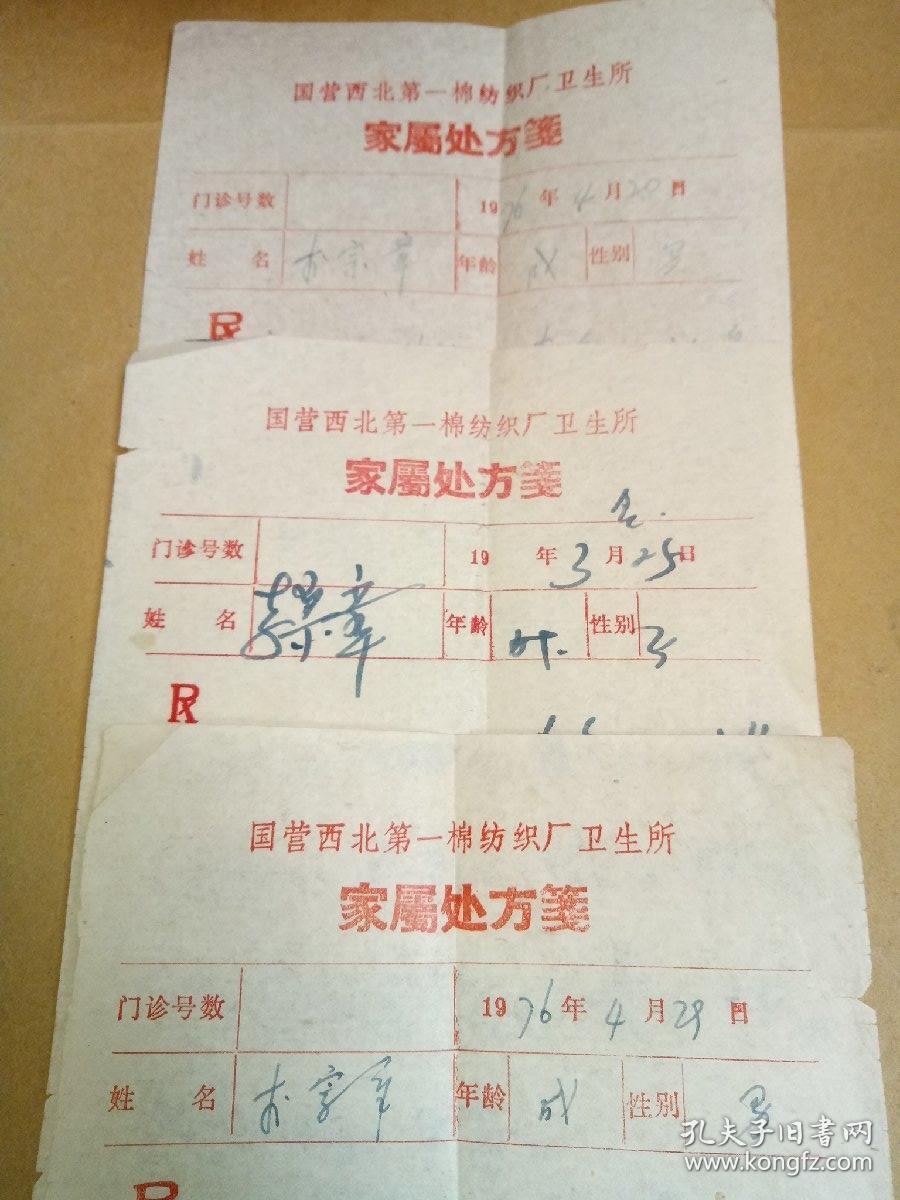 国营西北第一棉纺织厂卫生所
家屬处方箋
门诊号数 1976年4月20日
姓名 宗章 年龄 成 性别 男
R
国营西北第一棉纺织厂卫生所
家屬处方箋
门诊号数 19 年3月25日
姓名 年龄 性别
R
国营西北第一棉纺织厂卫生所
家屬处方箋
门诊号数 1976年4月29日
姓名 年龄 成 性别 男
R
孔夫子旧书网
www.kongfz.com